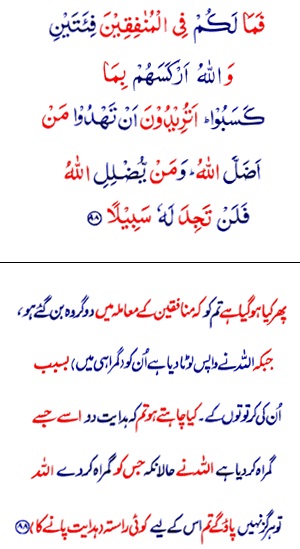 فَمَا لَكُمْ فِى الْمُنٰفِقِيْنَ فِئَتَيْنِ
وَاللهُ اَرْكَسَهُمْ بِمَا
كَسَبُوْاؕ اَتُرِيْدُوْنَ اَنْ تَهْدُوْا مَنْ
اَضَلَّ اللهُؕ وَمَنْ يُّضْلِلِ اللهُ
فَلَنْ تَجِدَ لَهٗ سَبِيْلًا ﴿۸۸﴾
پھر کیا ہو گیا ہے تم کو کہ منافقین کے معاملہ میں دو گروہ بن گئے ہو،
جبکہ اللہ نے واپس لوٹا دیا ہے اُن کو (گمراہی میں) بسبب
اُن کی کرتوتوں کے۔ کیا چاہتے ہو تم کہ ہدایت دو اسے جسے
گمراہ کر دیا ہے اللہ نے حالانکہ جس کو گمراہ کر دے اللہ
تو ہرگز نہیں پاؤ گے تم اس کے لیے کوئی راستہ (ہدایت پانے کا) ﴿۸۸﴾